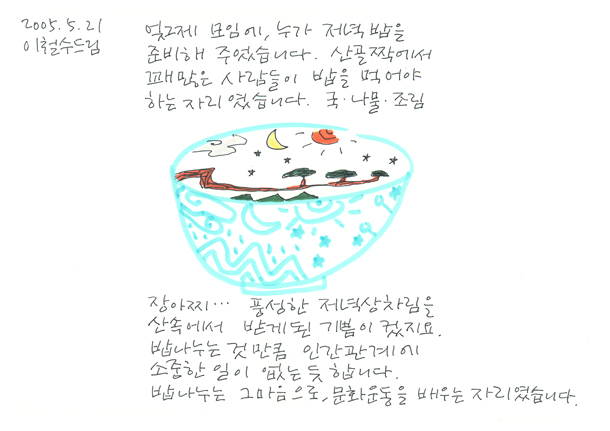 2005.5.21
이철수드림
엊그제 모임에, 누가 저녁밥을
준비해 주었습니다. 산골짝에서
꽤많은 사람들이 밥을 먹어야
하는 자리였습니다. 국·나물·조림
장아찌… 풍성한 저녁상차림을
산속에서 받게된 기쁨이 컸지요.
밥나누는 것만큼 인간관계에
소중한 일이 없는듯 합니다.
밥나누는 그마음으로, 문화운동을 배우는 자리였습니다.